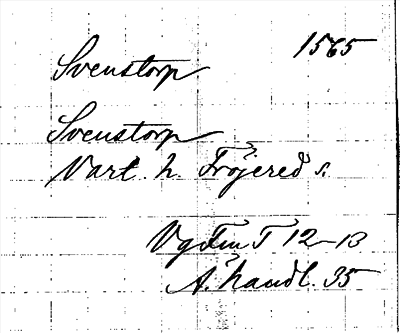 1565
Svenstorp
Svenstorp
Vart. h. Fröjered s.
12-13
A. handl. 35